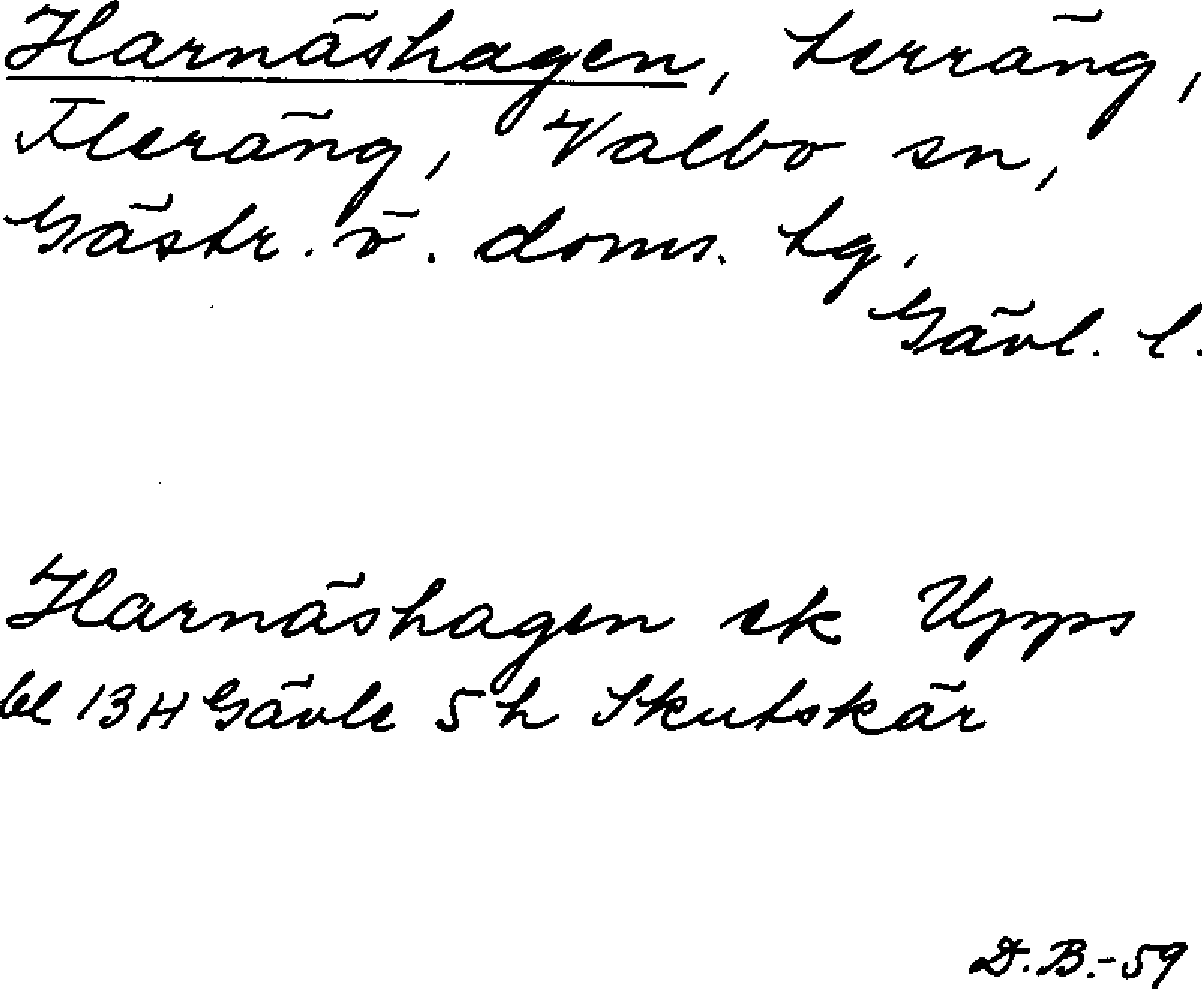 Harnäshagen, terräng,
Fleräng, Valbo sn,
Gästr. ö. doms. tg.
Gävl. l.
Harnäshagen ek Upps
bl 13H Gävle 5 h Skutskär
D.B.-59